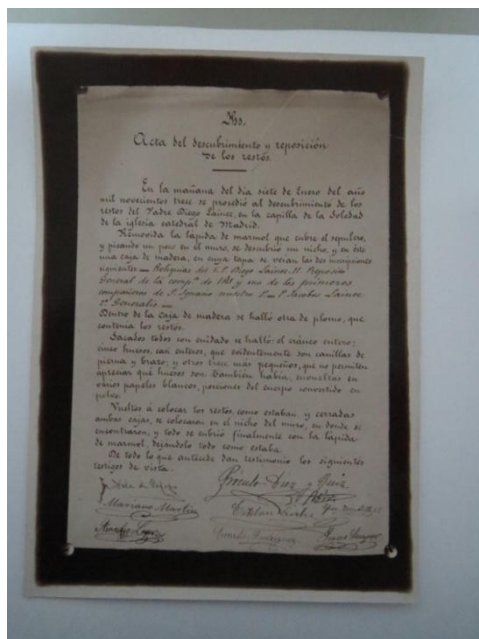 Acta del descubrimiento y reposición
de los restos.
En la mañana del día siete de Enero del año
mil novecientos trece se procedió al descubrimiento de los
restos del Padre Diego Laínez, en la capilla de la Soledad
de la iglesia catedral de Madrid.
Removida la lápida de marmol que cubre el sepulcro,
y picando un poco en el muro, se descubrió un nicho, y en éste
una caja de madera, en cuya tapa se veían las dos inscripciones
siguientes Reliquias del Diego Laínez II. Preposito
General de la y uno de los primeros
compañeros de S. Ignacio nuestro P. Jacobus Lainez
Generalis
Dentro de la caja de madera se halló otra de plomo, que
contenía los restos.
Sacados todos con cuidado se halló: el cráneo entero;
cinco huesos, casi enteros, que evidentemente son canillas de
pierna y brazo; y otros trece más pequeños, que no permiten
apreciar qué huesos son. También había, envueltas en
varios papeles blancos, porciones del cuerpo convertido en
polvo.
Vueltos á colocar los restos, como estaban y cerradas
ambas cajas, se colocaron en el nicho del muro, en donde se
encontraron; y todo se cubrió finalmente con la lápida
de marmol, dejándolo todo como estaba.
De todo lo que antecede dan testimonio los siguientes
testigos de vista.
Mariano Martin